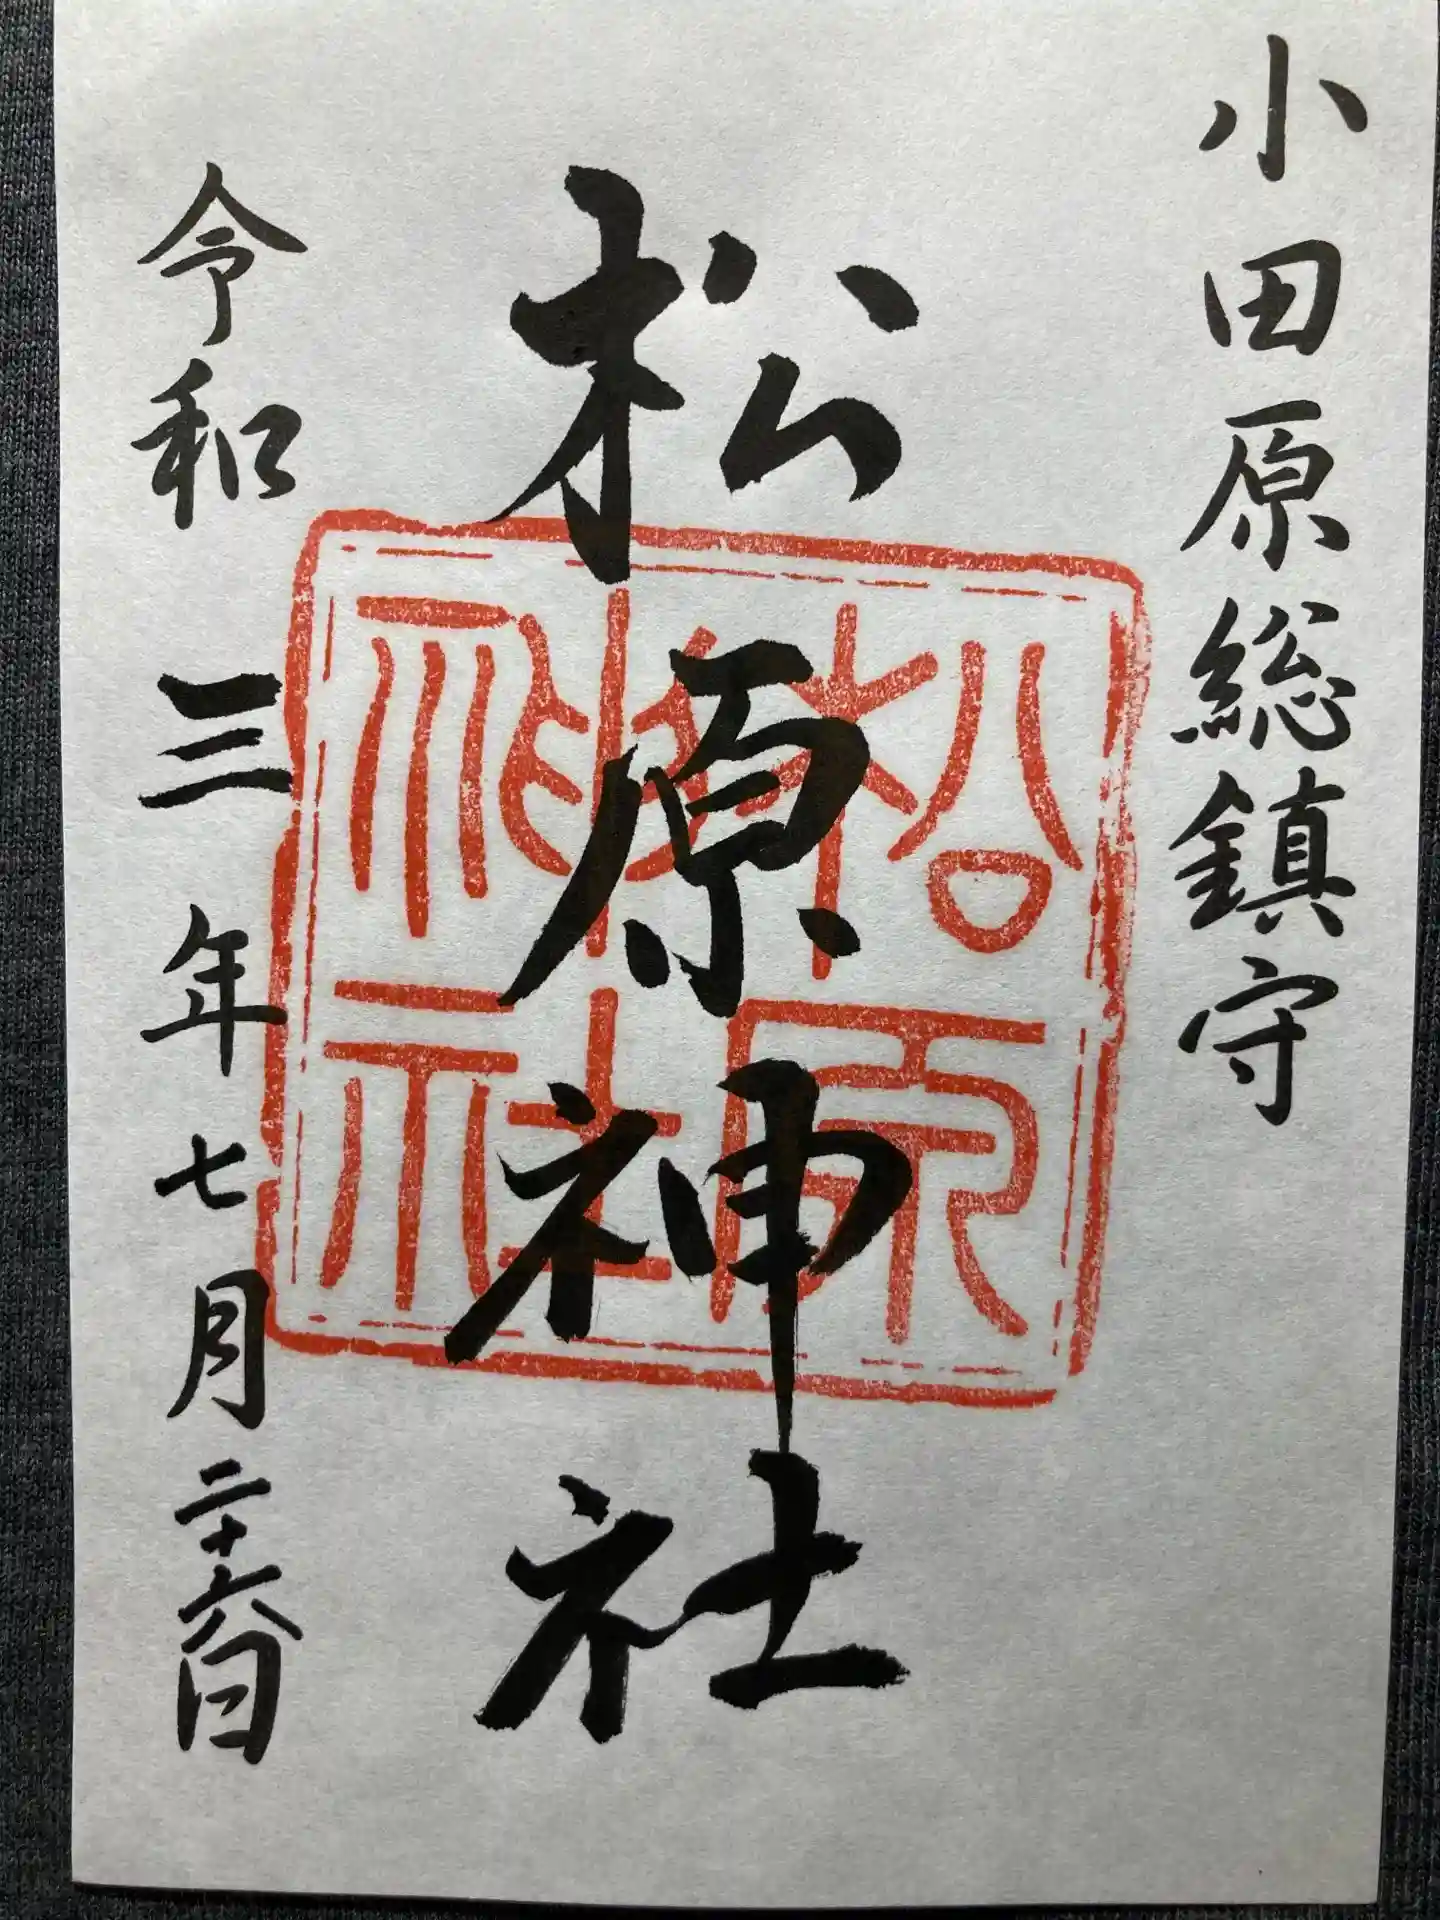 小田原総鎮守
松原神社
松原神社
令和三年七月二十六日